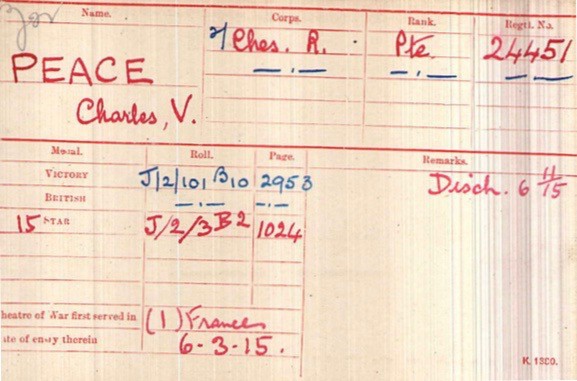 Name. Corps. Rank. Regtl. No.
PEACE Ches. R. Pte. 24451
Charles, V.
Medal. Roll. Page. Remarks.
VICTORY J/2/101 B10 2953 Disch. 6 11/15
BRITISH
15 STAR J/2/3 B2 1024
heatre of War first served in (1) France
ate of entry therein 6-3-15.
K. 1380.